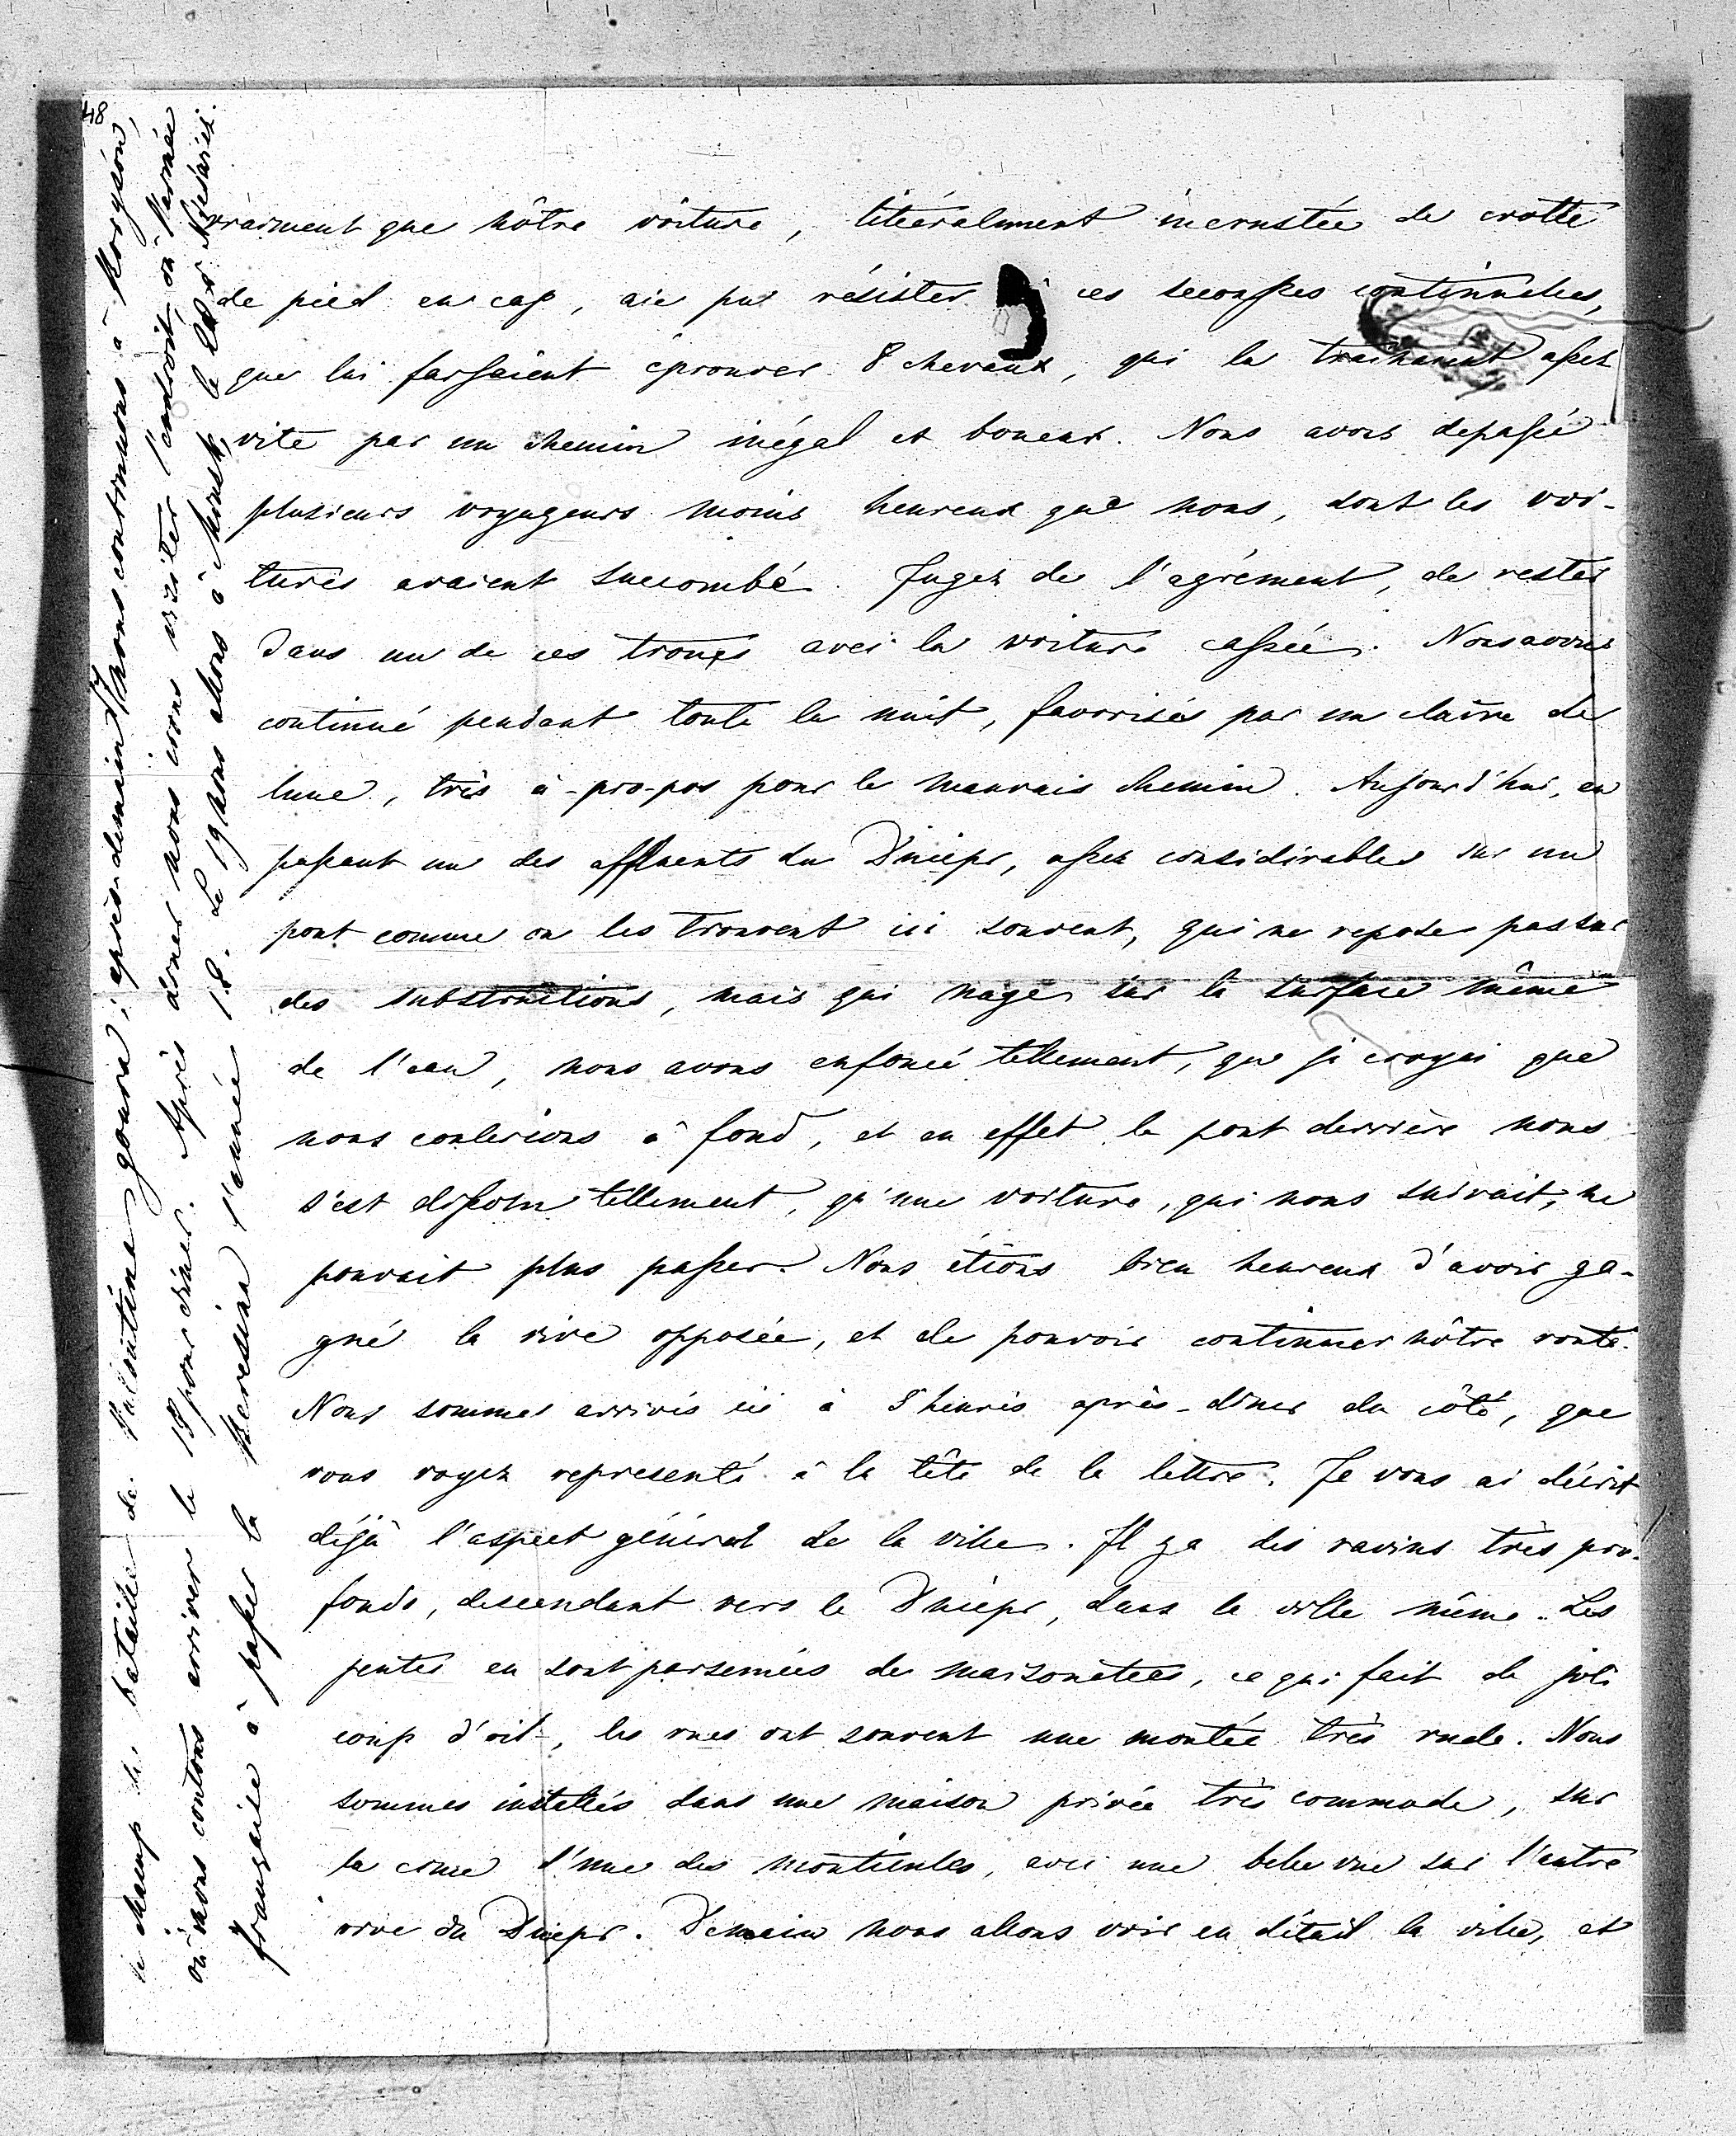 48
vraiment que nôtre vôiture, littéralement incrustée de crotte
de pied en cap, aie pu résister à ces secousses continuelles,
que lui faisaient éprouver 8 chevaux, qui la trainaient assez
vite par un chemin inégal et boueux. Nous avons depassé
plusieurs voyageurs moins heureux que nous, dont les voi-
tures avaient succombé. Jugez de l'agrément, de rester
dans un de ces trous avec la voiture cassée. Nous avons
continué pendant toute la nuit, favorisés par un claire de
lune, très à-pro-pos pour le mauvais chemin. Aujourd'hui, en
passant un des affluents du Dnièpr, assez considérables sur un
pont comme on les trouvent ici souvent, qui ne repose pas sur
des substructions, mais qui nage sur la surface même
de l'eau, nous avons enfoncé tellement, que je croyai que
nous coulerions à fond, et en effet le pont derrière nous
s'est dissolu tellement, qu'une voiture, qui nous suivait, ne
pouvait plus passer. Nous étions bien heureux d'avoir ga-
gné la rive opposée, et de pouvoir continuer nôtre route.
Nous sommes arrivés ici à 8 heures après-diner du côté, que
vous voyez representé à la tête de la lettre. Je vous ai décrit
déjà l'aspect général de la ville. Il y a des ravins très pro-
fonds, descendant vers le Dnièpr, dans la ville même. Les
pentes en sont parsemées de maisonetees, ce qui fait de joli
coup d'oil, les rues ont souvent une montée très rude. Nous
sommes installés dans une maison privée très commode, sur
la cime d'une des monticules, avec une belle vue sur l'autre
rive du Dniepr. Demain nous allons voir en détail la ville, et
le champ de bataille de Valoutina goura; après-demain 17 nous continuons à
où nous contons arriver le 18 pour diner. Après diner nous irons visiter l'endroit, où l'armée
française à passer la Beresina l'année 18. Le 19 nous allons à Minsk, le 20 à